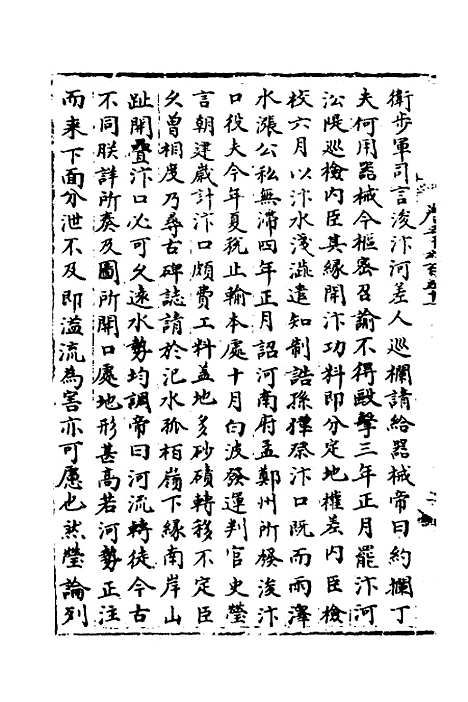 衛步軍司言浚汴河差人巡欄請給器械帝曰約欄丁
夫何用器械令樞密召諭不得毆擊三年正月罷汴河
㳂隄巡檢內臣其緣開汴功料即分定地權差內臣檢
校六月以汴水淺澁遣知制誥孫僅祭汴口既而雨澤
水漲公私無滯四年正月詔河南府孟鄭州所發浚汴
口役夫今年夏稅止輸本處十月白波發運判官史瑩
言朝建嵗計汴口頗費工料盖地多砂磧轉移不定臣
乆曾相度乃尋古碑誌請於汜水孤栢嶺下緣南岸山
趾開疊汴口必可乆遠水勢均調帝曰河流轉徒今古
不同朕詳所奏及圖所開口處地形甚高若河勢正注
而来下面分泄不及即溢流為害亦可慮也然瑩論列